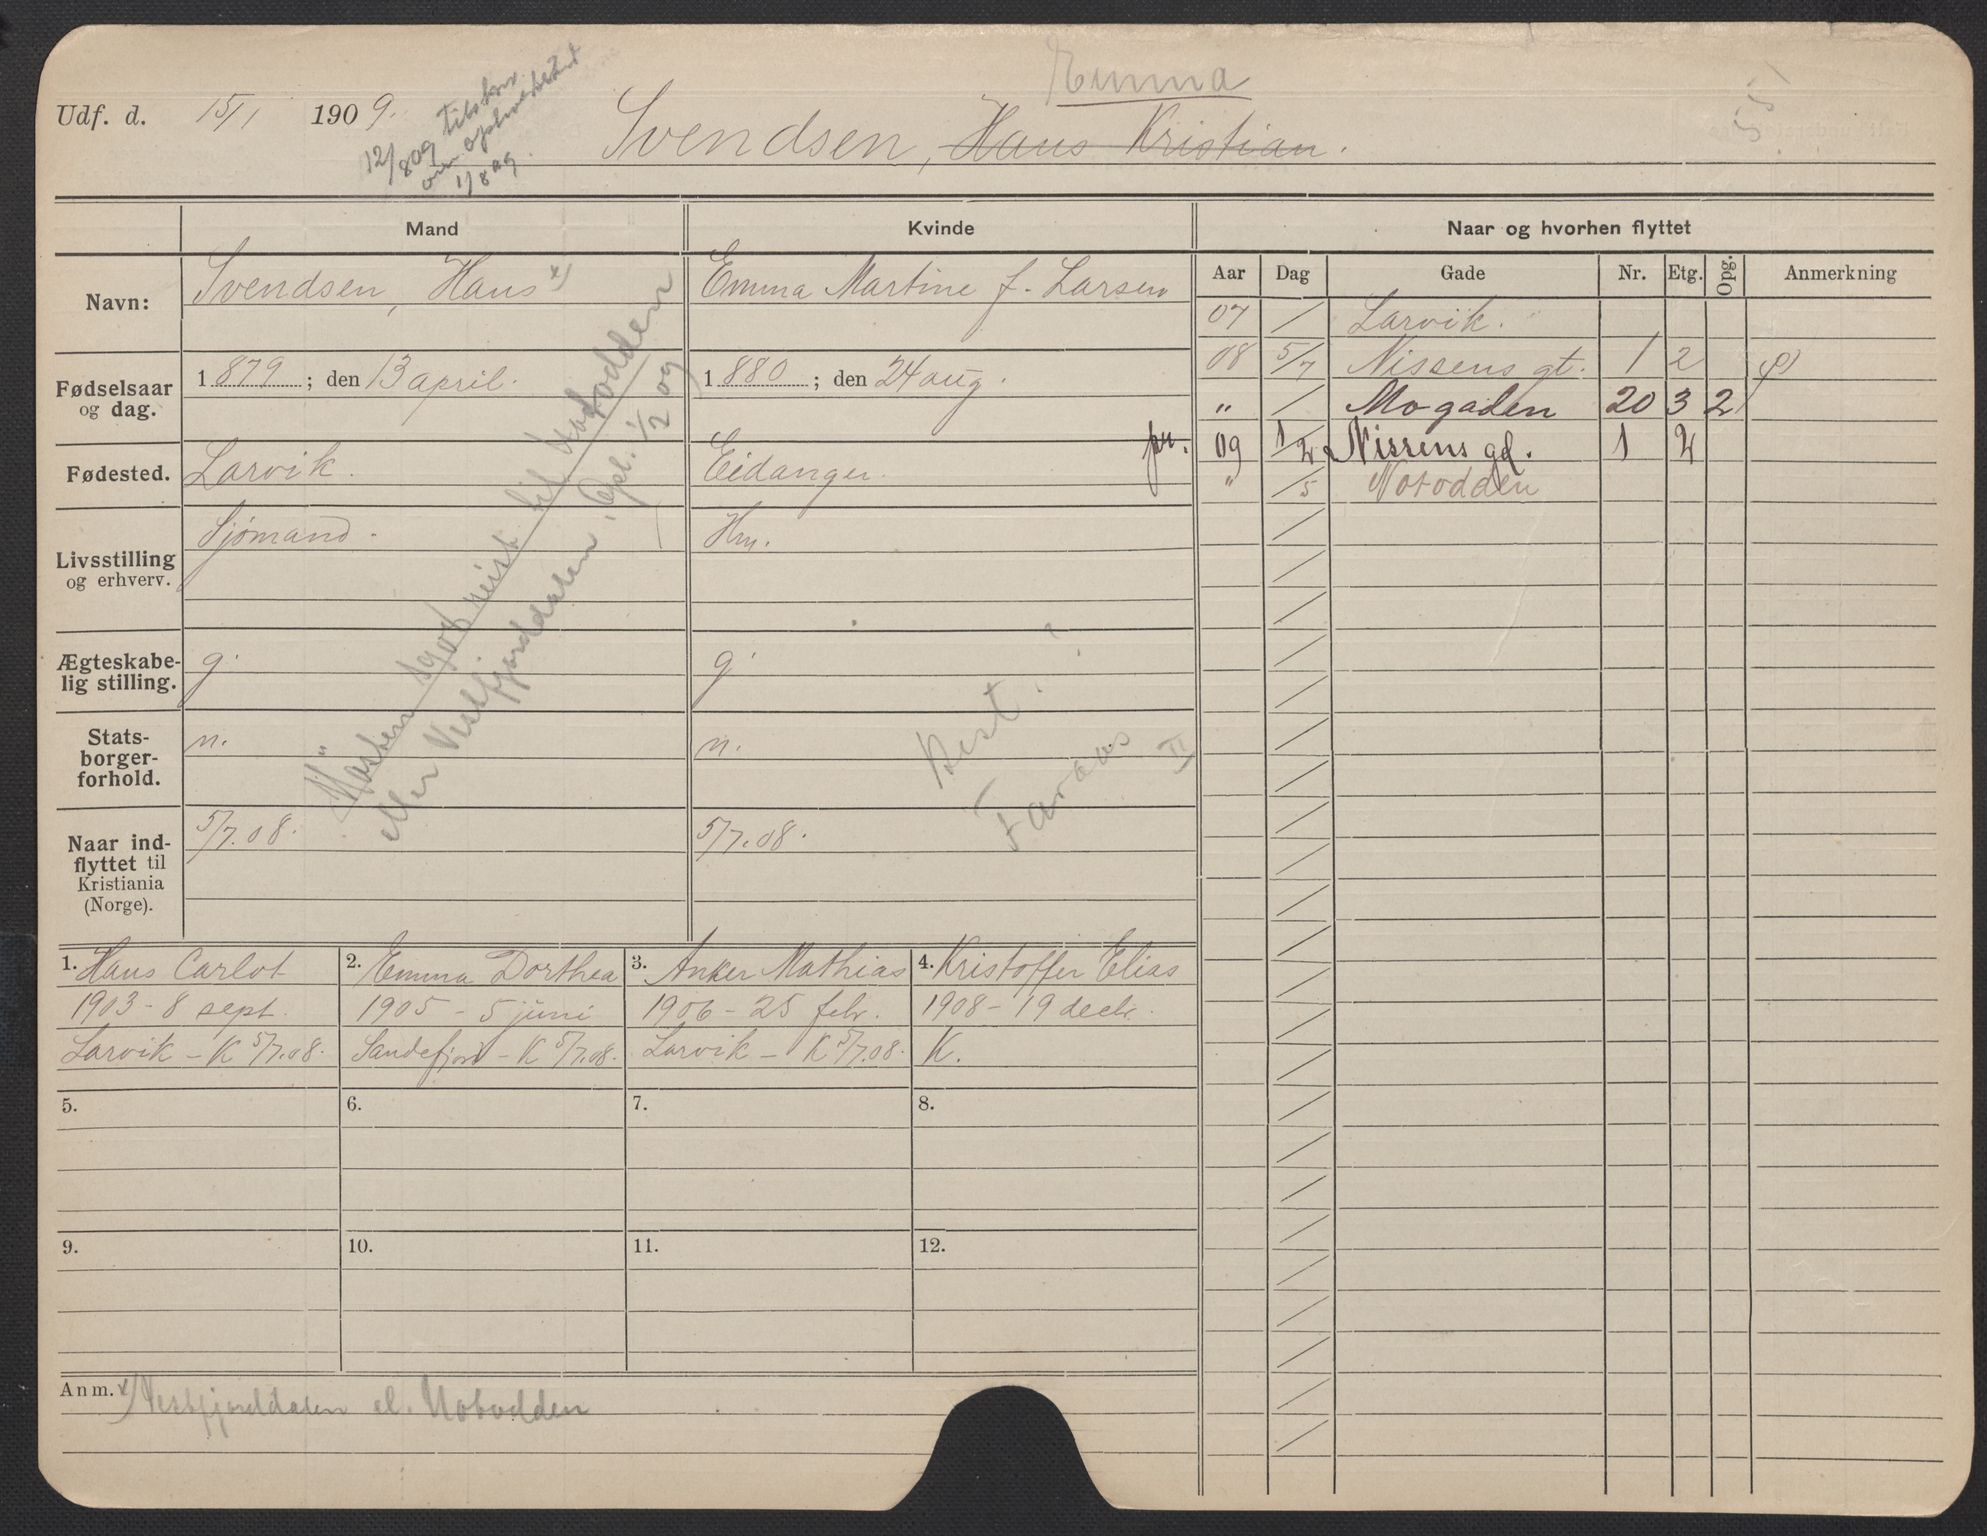 Emma
55
Udf. d. 15/1 1909. Svendsen, Hans Kristian.
12/8 09 tilskr.
om ophold
1/8 09.
Mand Kvinde Naar og hvorhen flyttet
Navn: Svendsen, Hans x) Emma Martine f. Larsen
Fødselsaar og dag. 1879; den 13 april. 1880; den 24 aug.
Fødested. Larvik. Eidanger.
Livsstilling og erhverv. Sjømand. Hm.
Ægteskabe-
lig stilling. g. g.
Stats-
borger-
forhold. n. n.
Naar ind-
flyttet til
Kristiania
(Norge). 5/7.08. 5/7.08.
reist til Notodden
eller Vestfjorddalen. Opl. 1/2 09
Best.
?
II
Aar Dag Gade Nr. Etg. Opg. Anmerkning
07 / Larvik.
08 5/7 Nissens gt. 1 2
" / Mogaden 20 3 2
fr. 09 1/2 Nissens gd. 1 2
" /5 Notodden
1. Hans Carlot
1903 - 8 sept.
Larvik - K 5/7.08.
2. Emma Dorthea
1905 - 5 juni
Sandefjord - K 5/7.08.
3. Anker Mathias
1906 - 25 febr.
Larvik - K 5/7.08.
4. Kristoffer Elias
1908 - 19 decbr.
K.
5. 6. 7. 8.
9. 10. 11. 12.
Anm. x) Vestfjorddalen el. Notodden